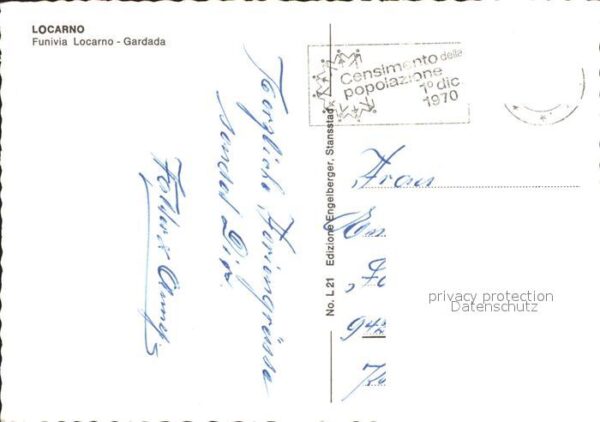 LOCARNO
Funivia Locarno - Gardada
Censimento della
popolazione
1° dic
1970
Herzliche Feriengrüsse
sendet Dir
No. L 21 Edizione Engelberger, Stansstad
Frau
privacy protection
Datenschutz